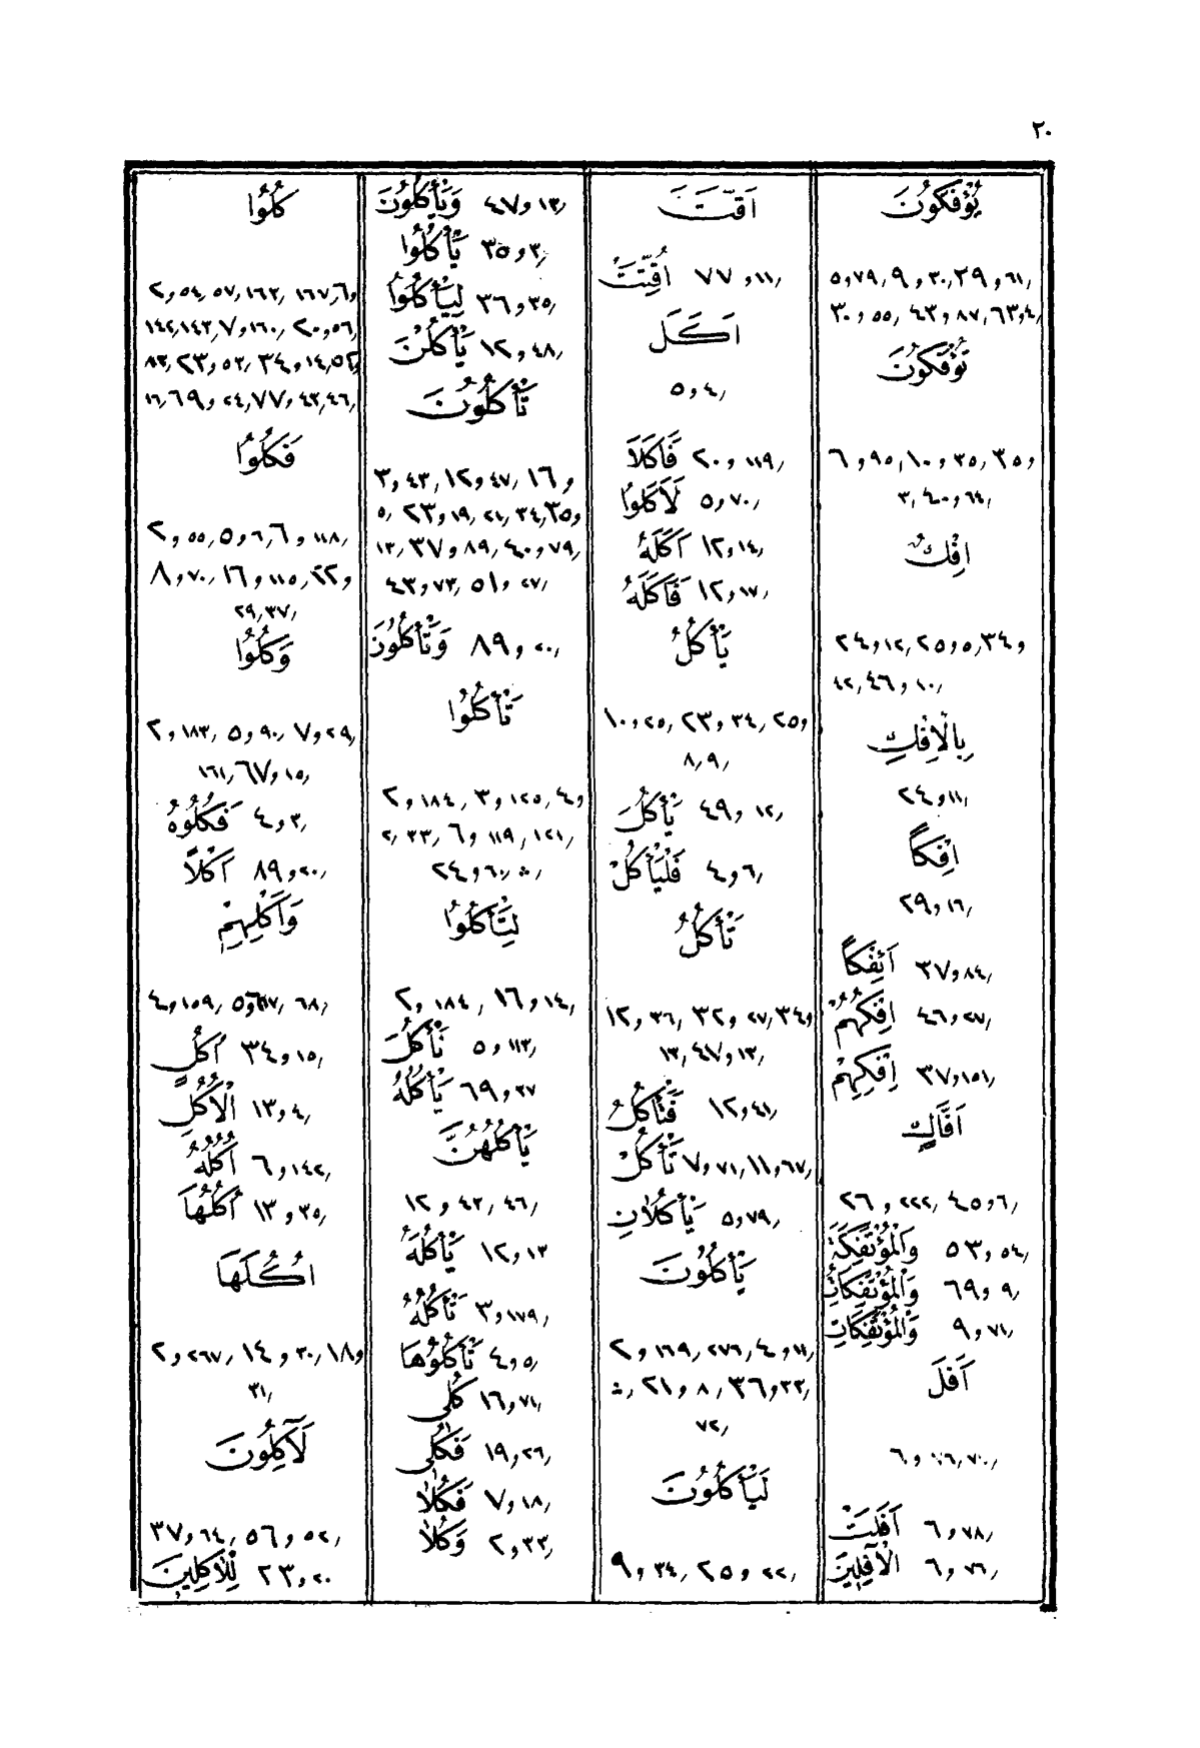 ٢٠
يُؤْفَكُونَ
٥و٧٩٫ ٩و٣٠٫ ٢٩و٦١٫
٣٠و٥٥٫ ٤٣و٨٧٫ ٦٣و٤٫
تُؤْفَكُونَ
٦و٩٥٫ ١٠و٣٥٫ ٣٥و
٣٫ ٤٠و٦٤٫
اِفْكٌ
٢٤و١٢٫ ٢٥و٥٫ ٣٤و
٤٢٫ ٤٦و١٠٫
بِالْاِفْكِ
٢٤و١١٫
اِفْكًا
٢٩و١٦٫
اَئِفْكًا ٣٧و٨٤٫
اِفْكُهُمْ ٤٦و٢٧٫
اِفْكِهِمْ ٣٧و١٥١٫
اَفَّاكٍ
٢٦و٢٢٢٫ ٤٥و٦٫
وَالْمُؤْتَفِكَةَ ٥٣و٥٤٫
وَالْمُؤْتَفِكَاتُ ٦٩و٩٫
وَالْمُؤْتَفِكَاتِ ٩و٧١٫
اَفَلَ
٦و٧٦٫٧٠٫
اَفَلَتْ ٦و٧٨٫
الْاٰفِلِينَ ٦و٧٦٫
اَقَّتَ
اُقِّتَتْ ٧٧و١١٫
اَكَلَ
٥و٤٫
فَاَكَلَا ٢٠و١١٩٫
لَاَكَلُوا ٥و٧٠٫
اَكَلَهُ ١٢و١٤٫
فَاَكَلَهُ ١٢و١٧٫
يَأْكُلُ
١٠و٢٥٫ ٢٣و٣٤٫ ٢٥و
٨٫٩٫
يَأْكُلَ ٤٩و١٢٫
فَلْيَأْكُلْ ٤و٦٫
تَأْكُلُ
١٢و٣٦٫ ٣٢و٢٧٫ ٣٤و
١٣٫ ٤٧و١٣٫
فَتَأْكُلُ ١٢و٤١٫
تَأْكُلْ ٧و٧١٫ ١١و٦٧٫
يَأْكُلَانِ ٥و٧٩٫
يَأْكُلُونَ
٢و١٦٩٫ ٢٧٦٫ ٤و١١٫
٨٫ ٢١و٨٫ ٣٦و٣٣٫
٧٢٫
لَيَأْكُلُونَ
٩و٣٤٫ ٢٥و٢٢٫
وَيَأْكُلُونَ ٤٧و١٣٫
يَأْكُلُوا ٣٥و٣٫
لِيَأْكُلُوا ٣٦و٣٥٫
يَأْكُلْنَ ١٢و٤٨٫
تَأْكُلُونَ
٣و٤٣٫ ١٢و٤٧٫ ١٦و
٥٫ ٢٣و١٩٫ ٢٤٫ ٣٤٫ ٢٥و
١٣٫ ٣٧و٨٩٫ ٤٠و٧٩٫
٤٣و٧٣٫ ٥١و٢٧٫
وَتَأْكُلُونَ ٨٩و٢٠٫
تَأْكُلُوا
٢و١٨٤٫ ٣و١٢٥٫ ٤و
٢٫ ٣٣٫ ٦و١١٩٫ ١٢١٫
٢٤و٦٠٫
لِتَأْكُلُوا
٢و١٨٤٫ ١٦و١٤٫
نَأْكُلَ ٥و١١٣٫
يَأْكُلُهُ ٦٩و٣٧
يَأْكُلُهُنَّ
١٢و٤٣٫ ٤٦٫
يَأْكُلَهُ ١٢و١٣
تَأْكُلُهُ ٣و١٧٩٫
تَأْكُلُوهَا ٤و٥٫
كُلِي ١٦و٧١٫
فَكُلِي ١٩و٢٦٫
فَكُلَا ٧و١٨٫
وَكُلَا ٢و٣٣٫
كُلُوا
٢و٥٤٫ ٥٧٫ ١٦٣٫ ١٦٧٫ ٦و
١٤٢٫ ١٤٣٫ ٧و١٦٠٫ ٢٠و٥٦٫
٨٣٫ ٢٣و٥٣٫ ٣٤و١٤٫ ٥٢
١٦٫ ٦٩و٢٤٫ ٧٧و٤٣٫ ٤٦٫
فَكُلُوا
٢و٥٥٫ ٥و٦٫ ٦و١١٨٫
٨و٧٠٫ ١٦و١١٥٫ ٢٢و
٢٩٫ ٣٧٫
وَكُلُوا
٢و١٨٣٫ ٥و٩٠٫ ٧و٢٩٫
١٦١٫ ٦٧و١٥٫
فَكُلُوهُ ٤و٣٫
اَكْلًا ٨٩و٢٠٫
وَاَكْلِهِمْ
٤و١٥٩٫ ٥و٦٧٫ ٦٨٫
اُكُلٍ ٣٤و١٥٫
الْاُكُلِ ١٣و٤٫
اُكُلُهُ ٦و١٤٢٫
اُكُلُهَا ١٣و٣٥٫
اُكُلَهَا
٢و٢٦٧٫ ١٤و٣٠٫ ١٨و
٣١٫
لَاٰكِلُونَ
٣٧و٦٤٫ ٥٦و٥٢٫
لِلْاٰكِلِينَ ٢٣و٢٠